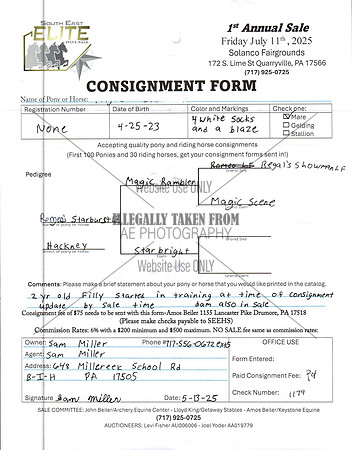 SOUTH EAST
ELITE
PONY SALE
1st Annual Sale
Friday July 11th, 2025
Solanco Fairgrounds
172 S. Lime St Quarryville, PA 17566
(717) 925-0725
CONSIGNMENT FORM
Name of Pony or Horse:
Registration Number
Date of Birth
Color and Markings
Check one:
None
4-25-23
4 white socks
and a blaze
Mare
Gelding
Stallion
Accepting quality pony and riding horse consignments
(First 100 Ponies and 30 riding horses, get your consignment forms sent in!)
Pedigree
Regal's Showman LF
Magic Rambler
Website Use ONLY
Magic Scene
Romeo Starburst
ILLEGALLY TAKEN FROM
AE PHOTOGRAPHY
Hackney
Starbright
Website Use ONLY
Comments: Please make a brief statement about your pony or horse that you would like printed in the catalog.
2 yr old Filly Started in training at time of consignment
update by sale time dam also in sale
Consignment fee of $75 needs to be sent with this form to-Amos Beiler 1155 Lancaster Pike Drumore, PA 17518
(Please make checks payable to SEEHS)
Commission Rates: 6% with a $200 minimum and $500 maximum. NO SALE fee same as commission rates:
Owner: Sam Miller Phone # 717-556-0672 ex5
Agent: Sam Miller
Address: 648 Millcreek School Rd
B-I-H PA 17505
Signature Sam Miller Date: 5-13-25
OFFICE USE
Form Entered:
Paid Consignment Fee: Pd
Check Number: 1179
SALE COMMITTEE: John Beiler/Archery Equine Center - Lloyd King/Getaway Stables - Amos Beiler/Keystone Equine
(717) 925-0725
AUCTIONEERS: Levi Fisher AU006006 - Joel Yoder AA019779